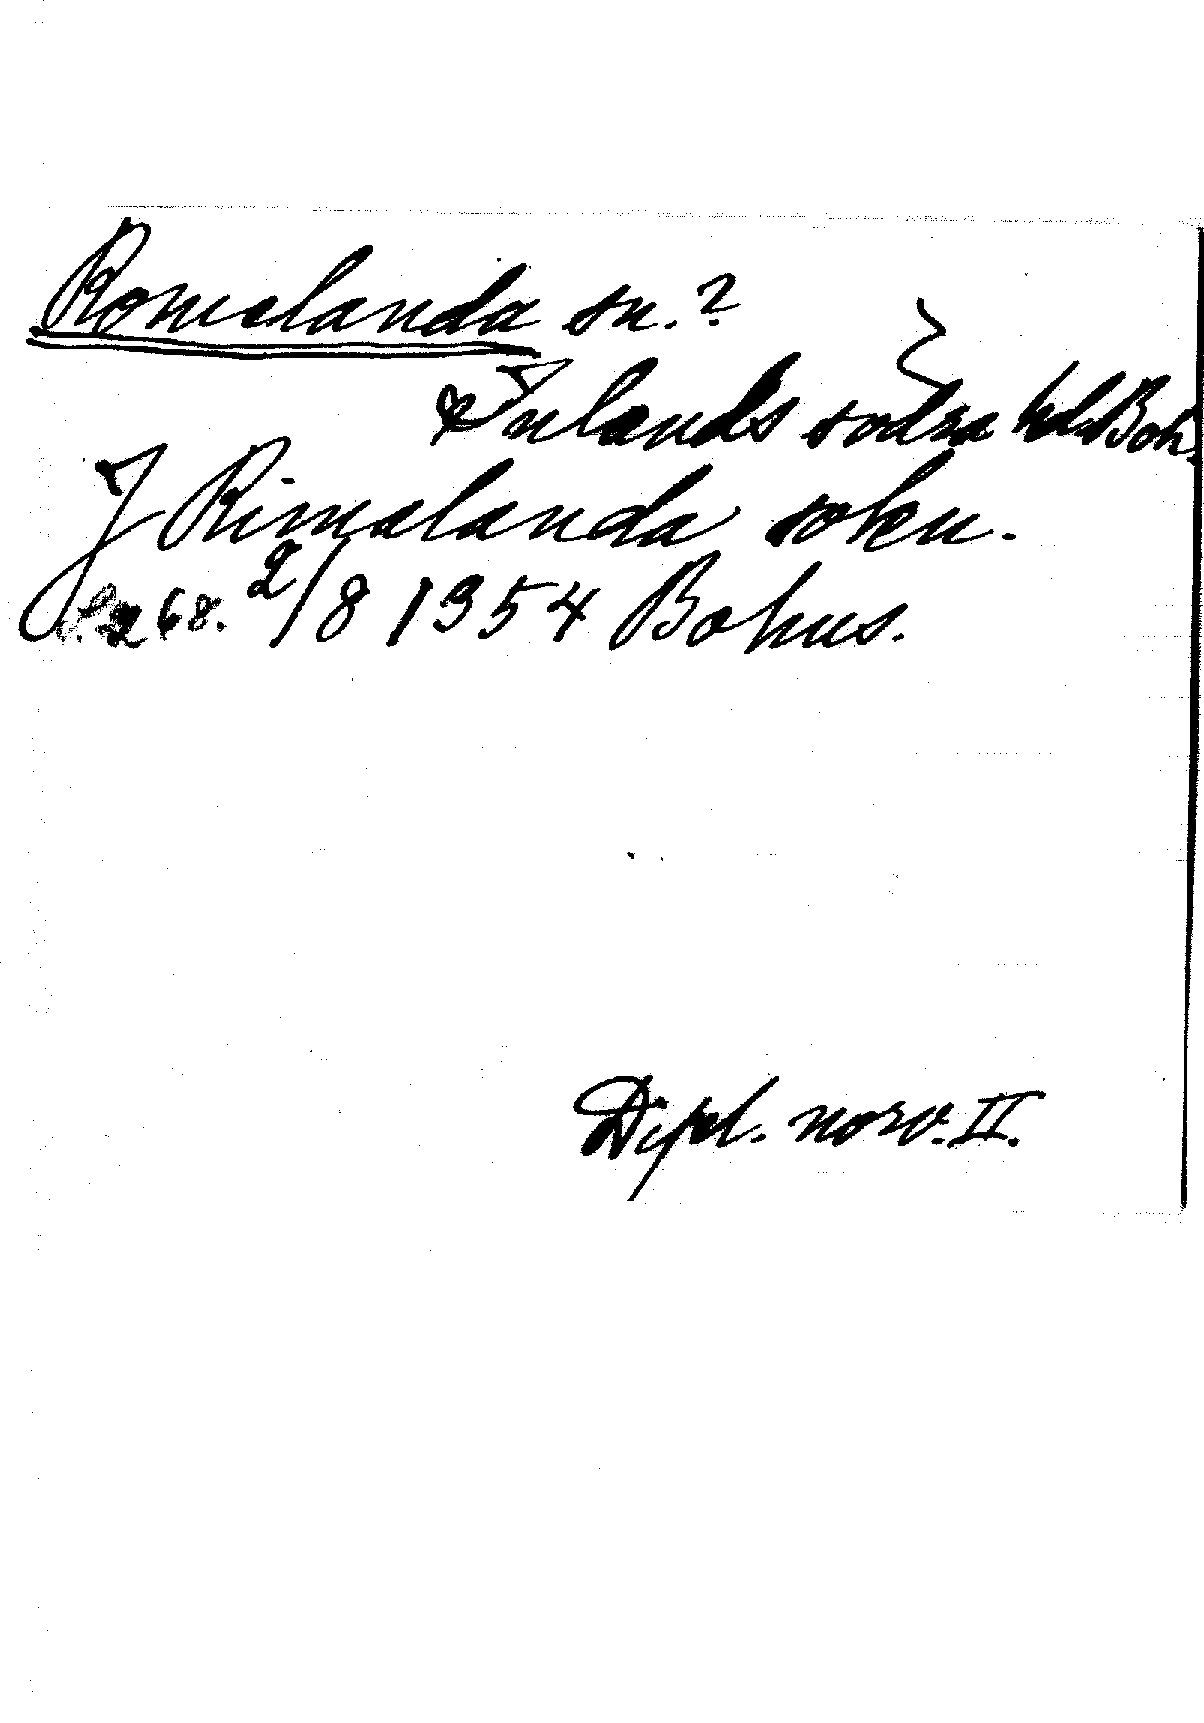 Romelanda sn.?
Inlands södra hd. Boh.
J Rimalanda sokn.
s. 268. 2/8 1354 Bohus.
Dipl. norv. II.